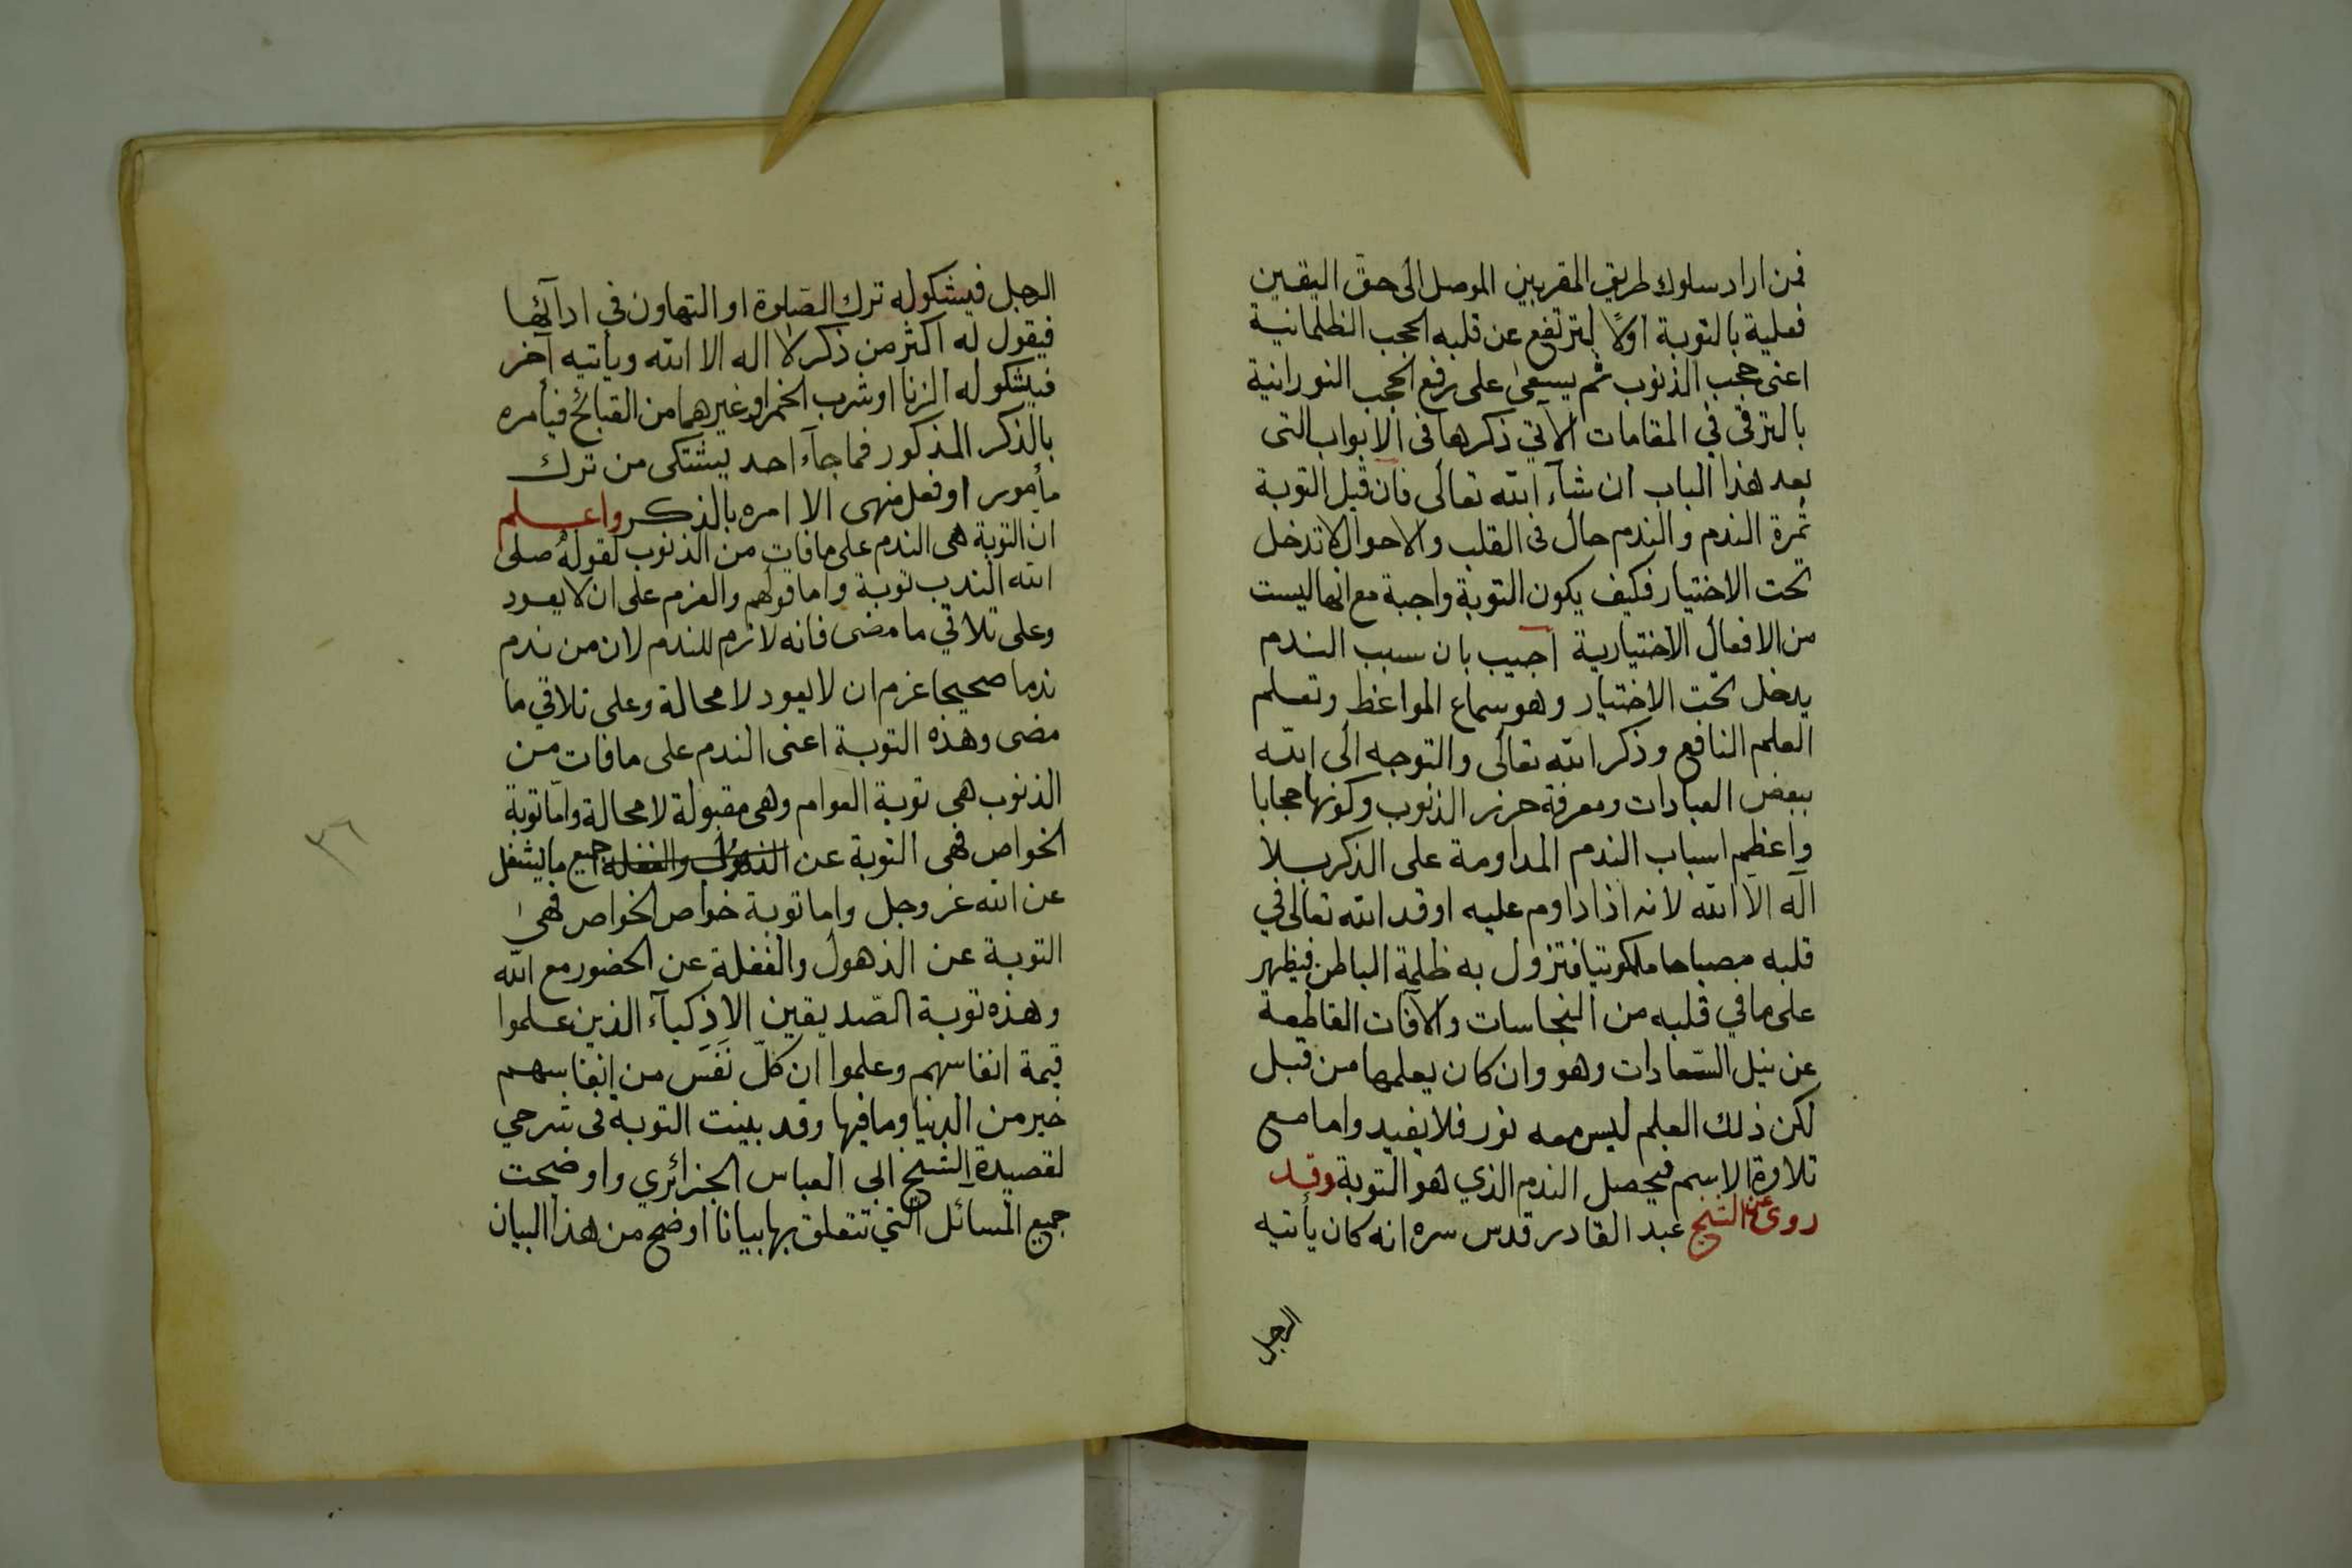 فمن اراد سلوك طريق المقربين الموصل الى حق اليقين
فعلية بالتوبة اولاً لترتفع عن قلبه الحجب الظلمانية
اعنى حجب الذنوب ثم يسعى على رفع الحجب النورانية
بالترقى في المقامات الآتي ذكرها فى الابواب التى
بعد هذا الباب ان شآء الله تعالى فان قيل التوبة
ثمرة الندم والندم حال فى القلب والاحوال لا تدخل
تحت الاختيار فكيف يكون التوبة واجبة مع انها ليست
من الافعال الاختيارية اجيب بان سبب الندم
يدخل تحت الاختيار وهو سماع المواعظ وتعلم
العلم النافع وذكر الله تعالى والتوجه الى الله
ببعض العبادات ومعرفة حرز الذنوب وكونها حجابا
واعظم اسباب الندم المداومة على الذكر بلا
اله الا الله لانه اذا داوم عليه اوقد الله تعالى في
قلبه مصباحا ملكوتيا فتزول به ظلمة الباطن فيظهر
على ما في قلبه من النجاسات والآفات القاطعة
عن نيل السّعادات وهو وان كان يعلمها من قبل
لكن ذلك العلم ليس معه نور فلا يفيد واما مع
تلاوة الاسم فيحصل الندم الذي هو التوبة وقد
روى عن الشيخ عبد القادر قدس سره انه كان يأتيه
الرجل
الرجل فيشكو له ترك الصّلوة او التهاون في ادآئها
فيقول له اكثر من ذكر لا اله الا الله ويأتيه آخر
فيشكو له الزنا او شرب الخمر او غيرهما من القبائح فيأمره
بالذكر المذكور فما جآء احد يشتكى من ترك
مأمور او فعل منهى الا امره بالذكر واعلم
ان التوبة هى الندم على ما فات من الذنوب لقوله صلى
الله الندب توبة واما قولهم والعزم على ان لا يعود
وعلى تلاقي ما مضى فانه لازم للندم لان من ندم
ندما صحيحا عزم ان لا يعود لا محالة وعلى تلاقي ما
مضى وهذه التوبة اعنى الندم على ما فات من
الذنوب هى توبة العوام وهى مقبولة لا محالة وامّا توبة
الخواص فهى التوبة عن الذهول والغفلة جميع ما يشغل
عن الله عز وجل واما توبة خواص الخواص فهى
التوبة عن الذهول والغفلة عن الحضور مع الله
وهذه توبة الصّديقين الاذكيآء الذين علموا
قيمة انفاسهم وعلموا ان كلّ نَفَس من انفاسهم
خير من الدنيا وما فيها وقد بينت التوبة فى شرحي
لقصيدة الشيخ ابى العباس الجزائري واوضحت
جميع المسآئل التي تتعلق بها بيانا اوضح من هذا البيان
٣٦